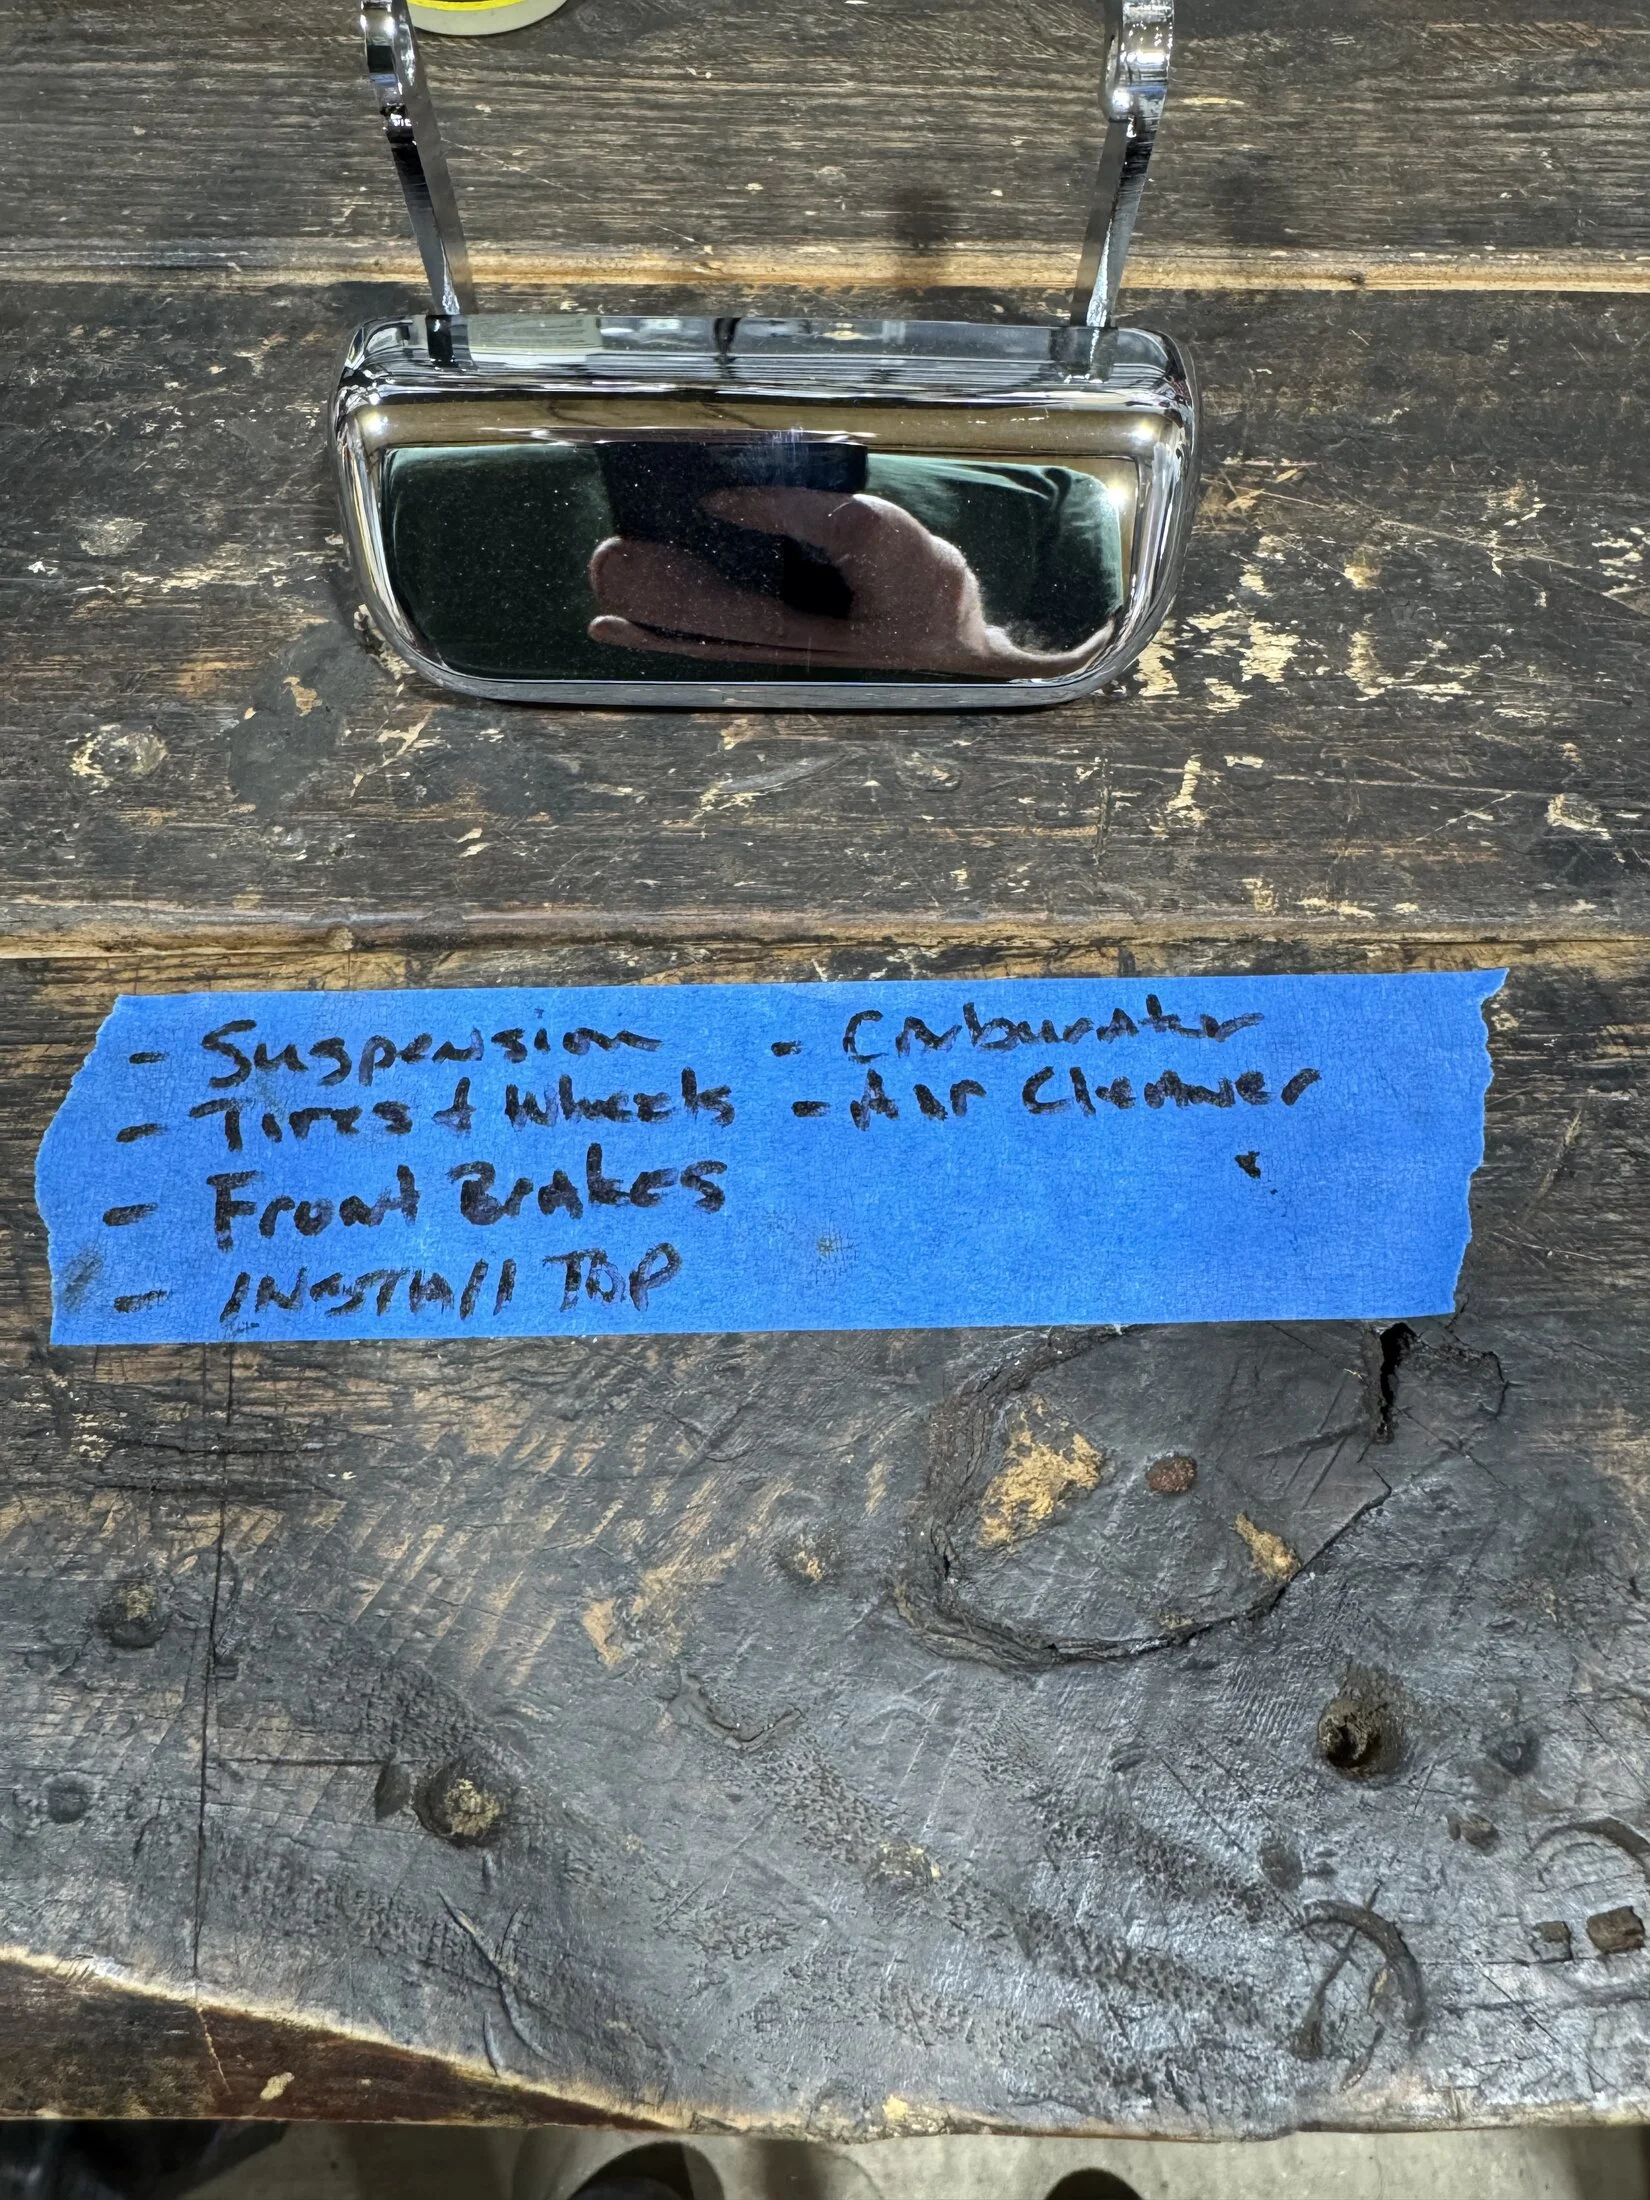 - Suspension
- Tires + Wheels
- Front Brakes
- INSTAll TOP
- Carburator
- Air Cleaner